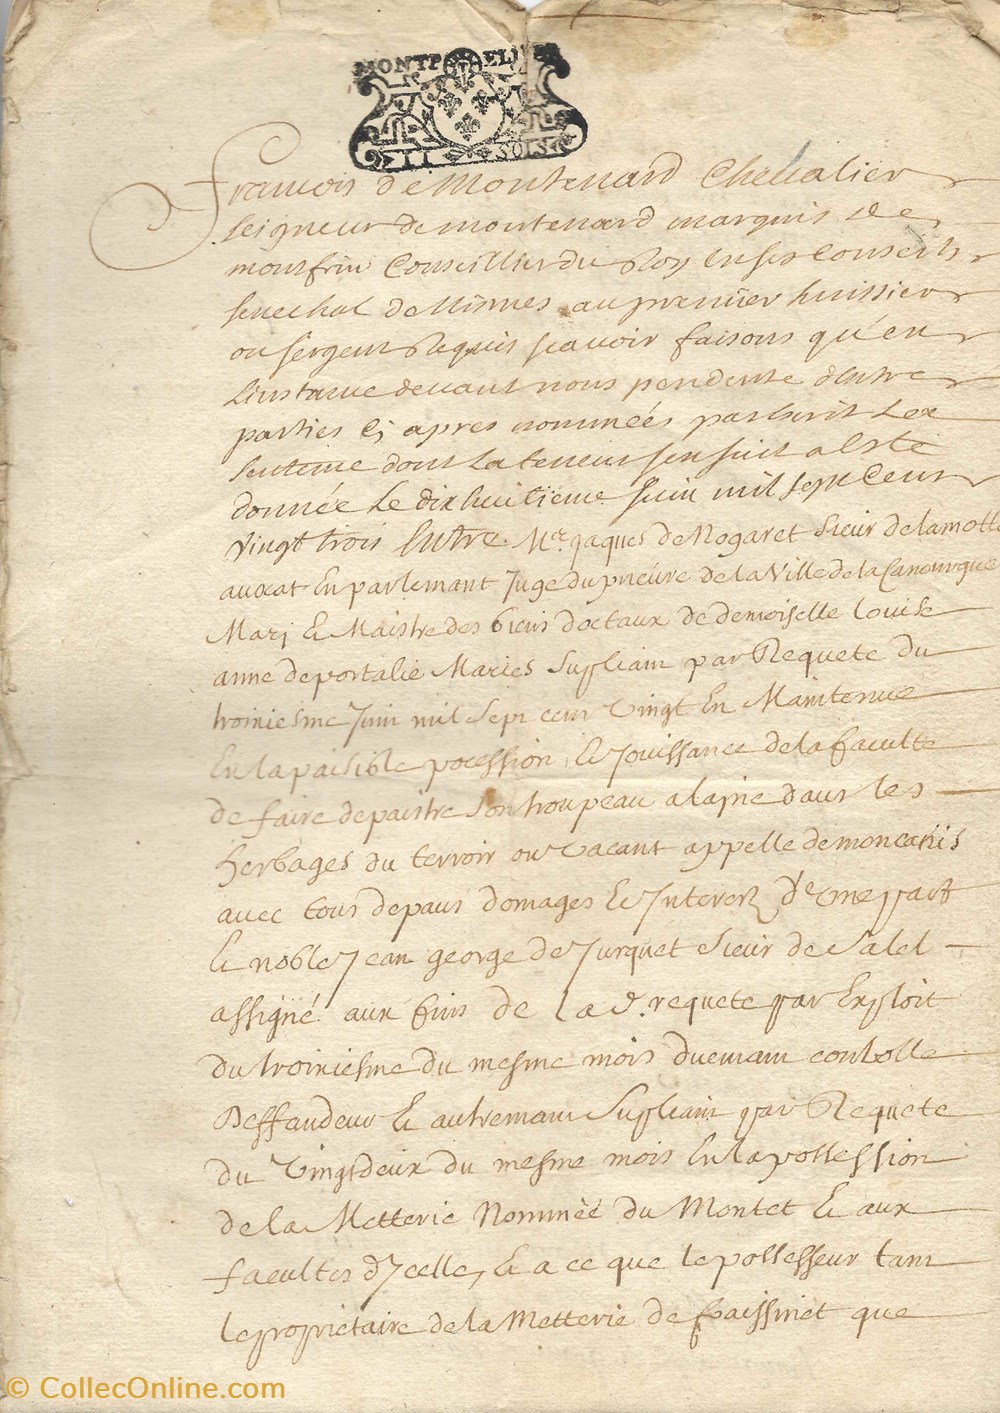 MONTPELLIER
II SOLS
Francois de Montenard Chevalier
seigneur de montenard marquis de
montfrin Conseiller du Roy en ses Conseils
senechal de Nismes au premier huissier
ou sergent Requis scavoir faisons qu'en
linstance devant nous pendente d'entre
parties cy apres nommées par escrit
sentence dont la teneur sensuit a este
donnée Le dixhuitieme Juin mil sept Cent
vingt trois Entre Mre. jaques de Nogaret sieur de lamotte
avocat En parlemant Juge du prieure de la Ville de la Canourgue
Mary & Maistre des biens doctaux de demoiselle louise
anne de portalie Maries supliant par Requete du
troiziesme Juin mil sept cent vingt En Maintenue
En la paisible pocession & Jouissance de la faculte
de faire depaistre son troupeau a laine dans les
herbages du terroir ou vacant appelle de moncanis
avec tous depans domages & Interetz d'une part
& noble Jean george de Jurquet sieur de salel
assigné aux fins de lad. requete par Exploit
du troiziesme du mesme mois duemant contolle
Deffandeur & autremant supliant par Requete
du vingtdeux du mesme mois En la possession
de la Metterie Nommée du Montet & aux
facultes d'Icelle, & a ce que le possesseur tant
le propriétaire de la Metterie de faissinet que
© CollecOnline.com